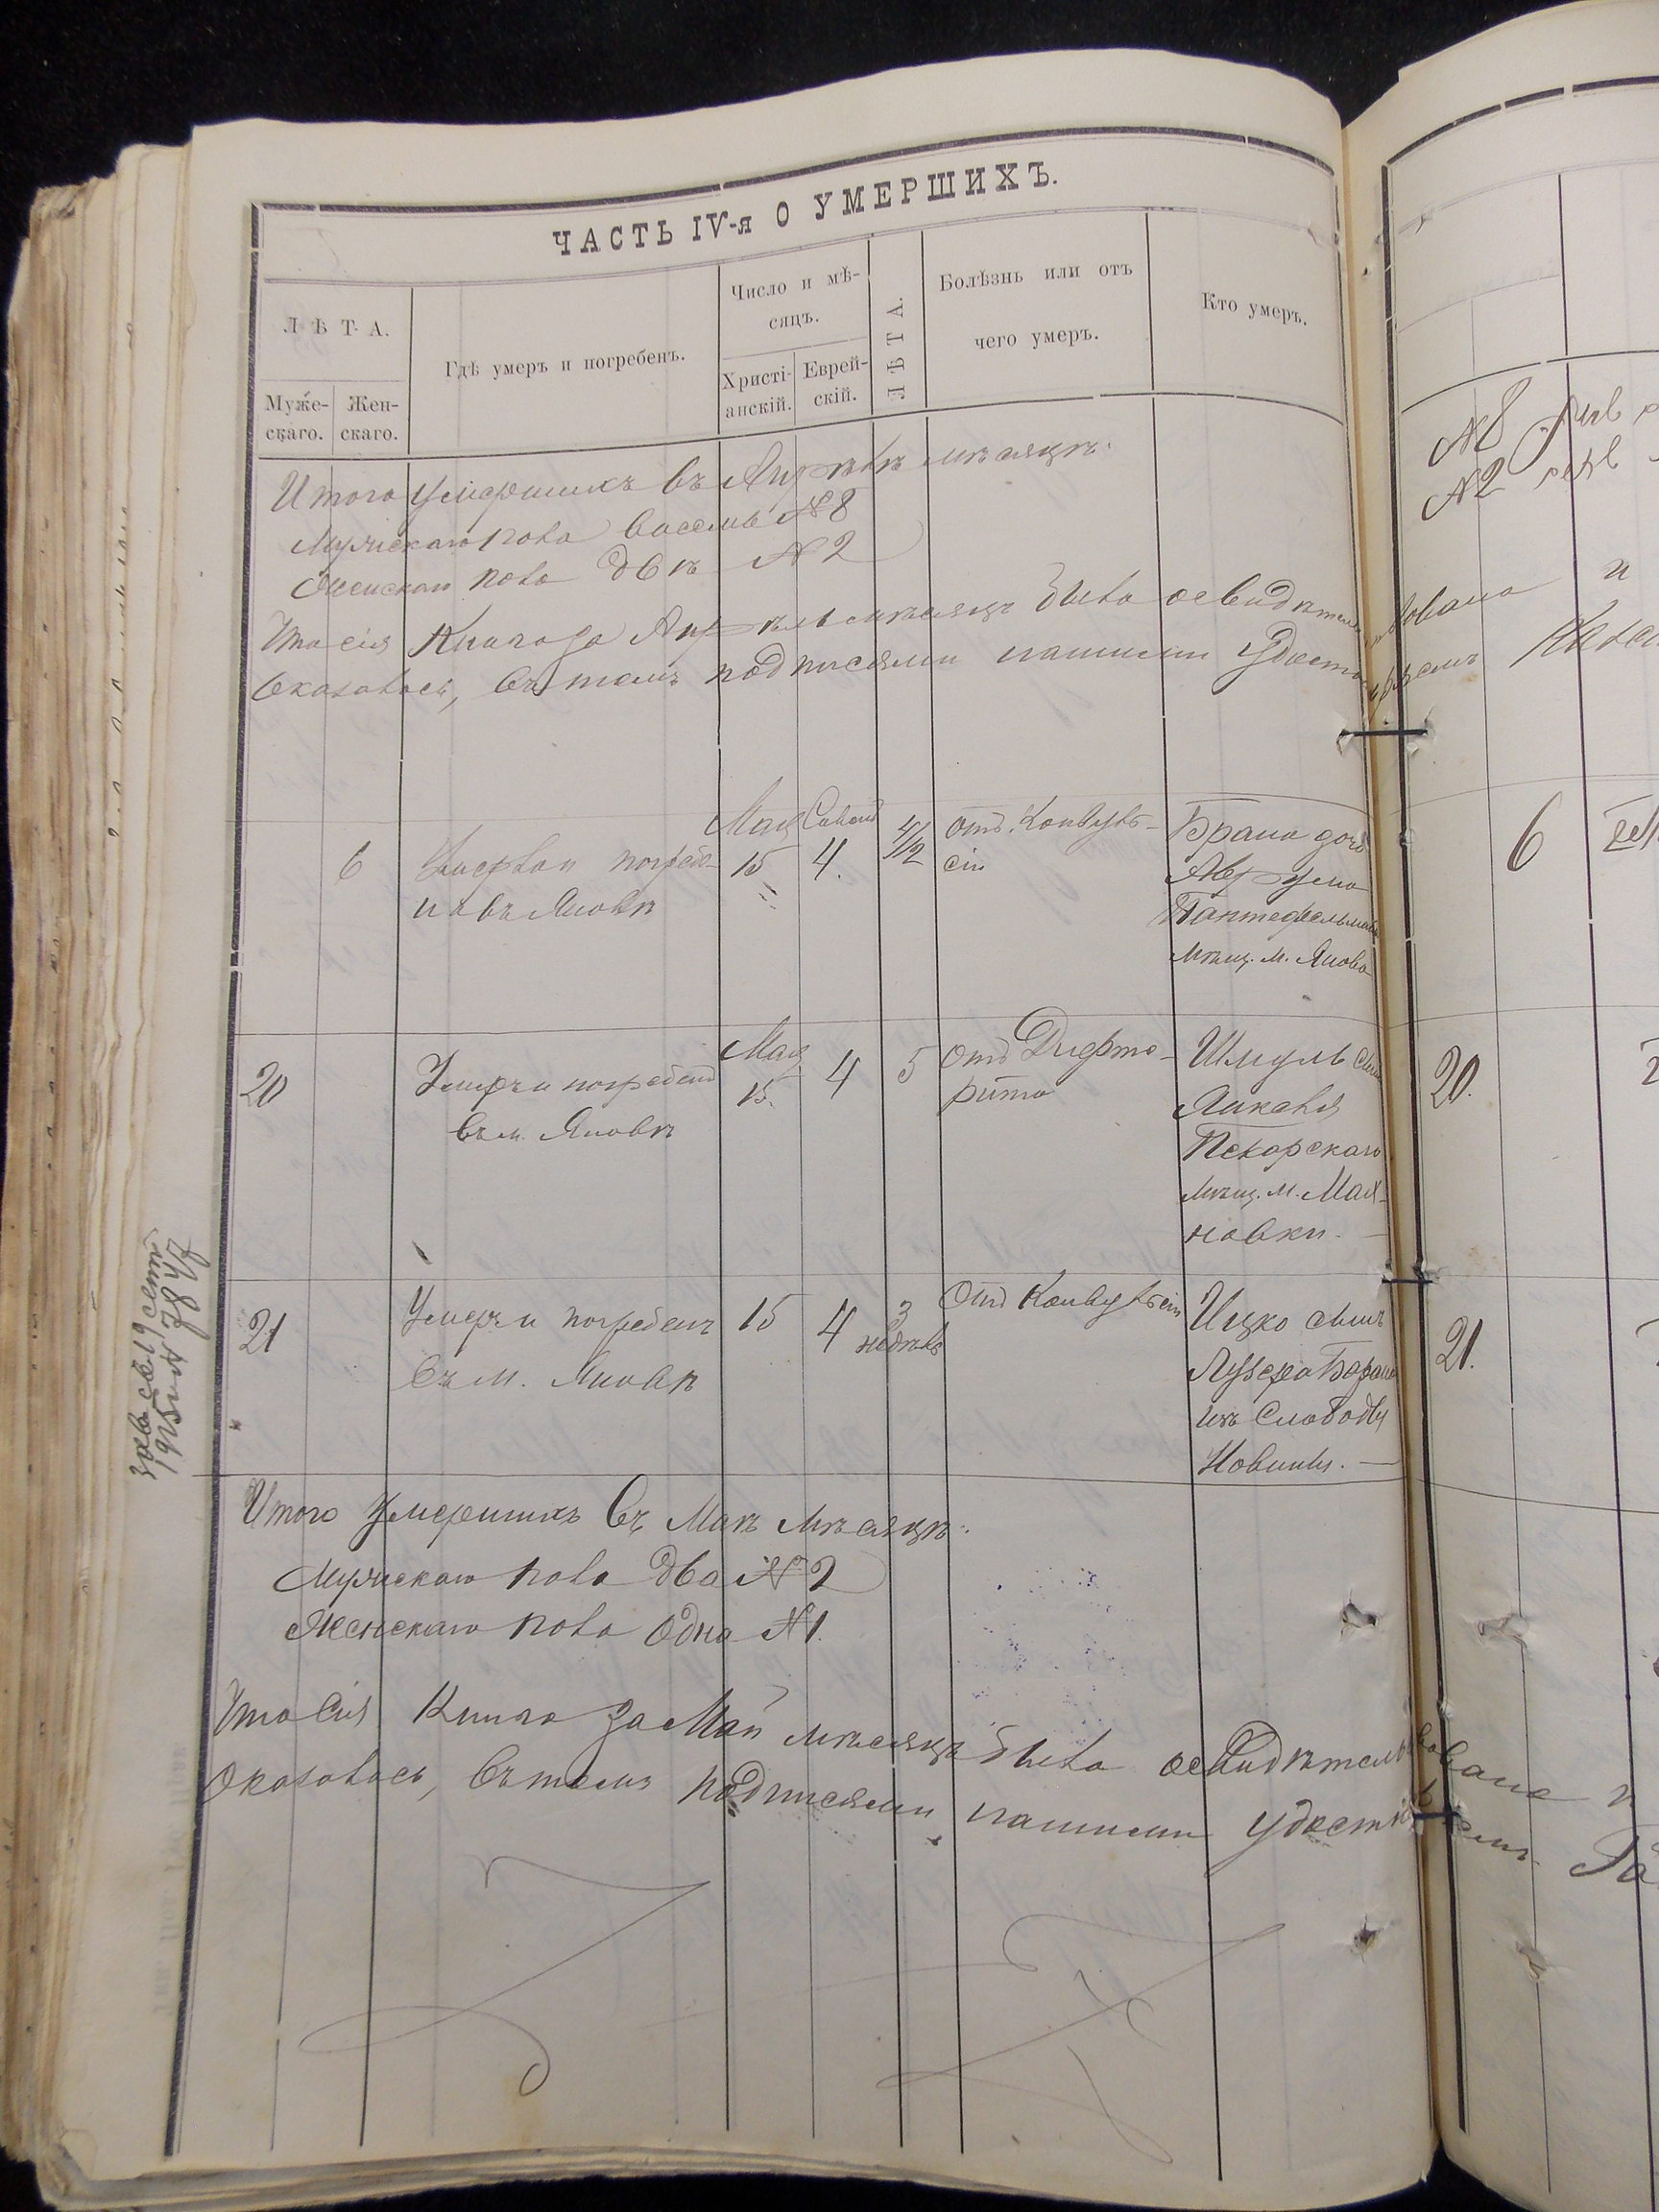 ЧАСТЬ IV-я О УМЕРШИХЪ.
ЛѢТА.
Муже-
скаго.
Жен-
скаго.
Гдѣ умеръ и погребенъ.
Число и мѣ-
сяцъ.
Христі-
анскій.
Еврей-
скій.
ЛѢТА.
Болѣзнь или отъ
чего умеръ.
Кто умеръ.
Итого умершихъ въ Апрѣлѣ мѣсяцѣ:
Мужскаго пола восемь № 8
Женскаго пола двѣ № 2
Что сія Книга за Апрѣль мѣсяцъ была освидѣтельствована и
Оказалось, въ томъ подписями нашими удостовѣряемъ
№8
№2
6
Умерла и погребе-
на въ Яновѣ
Мая
15
Сивонъ
4.
4/2
отъ Конвуль-
сіи
Брана дочь
Аврума
Пантофельмана
мѣщ. м. Янова
6
20
Умеръ и погребенъ
въ м. Яновѣ
Мая
15.
4
5
отъ Дифте-
рита
Шмуль сынъ
Янкеля
Пекарскаго
мѣщ. м. Мах-
новки.
20.
21
Умеръ и погребенъ
въ м. Яновѣ
15
4
3
недѣль
Отъ Конвульсіи
Ицко сынъ
Лузера Барана
изъ Слободы
Новины.
21.
Итого умершихъ въ Маѣ мѣсяцѣ:
Мужскаго пола два № 2
Женскаго пола одна № 1.
Что сія Книга за Май мѣсяцъ была освидѣтельствована и
Оказалось, въ томъ подписями нашими удостовѣряемъ
19 сент
7847